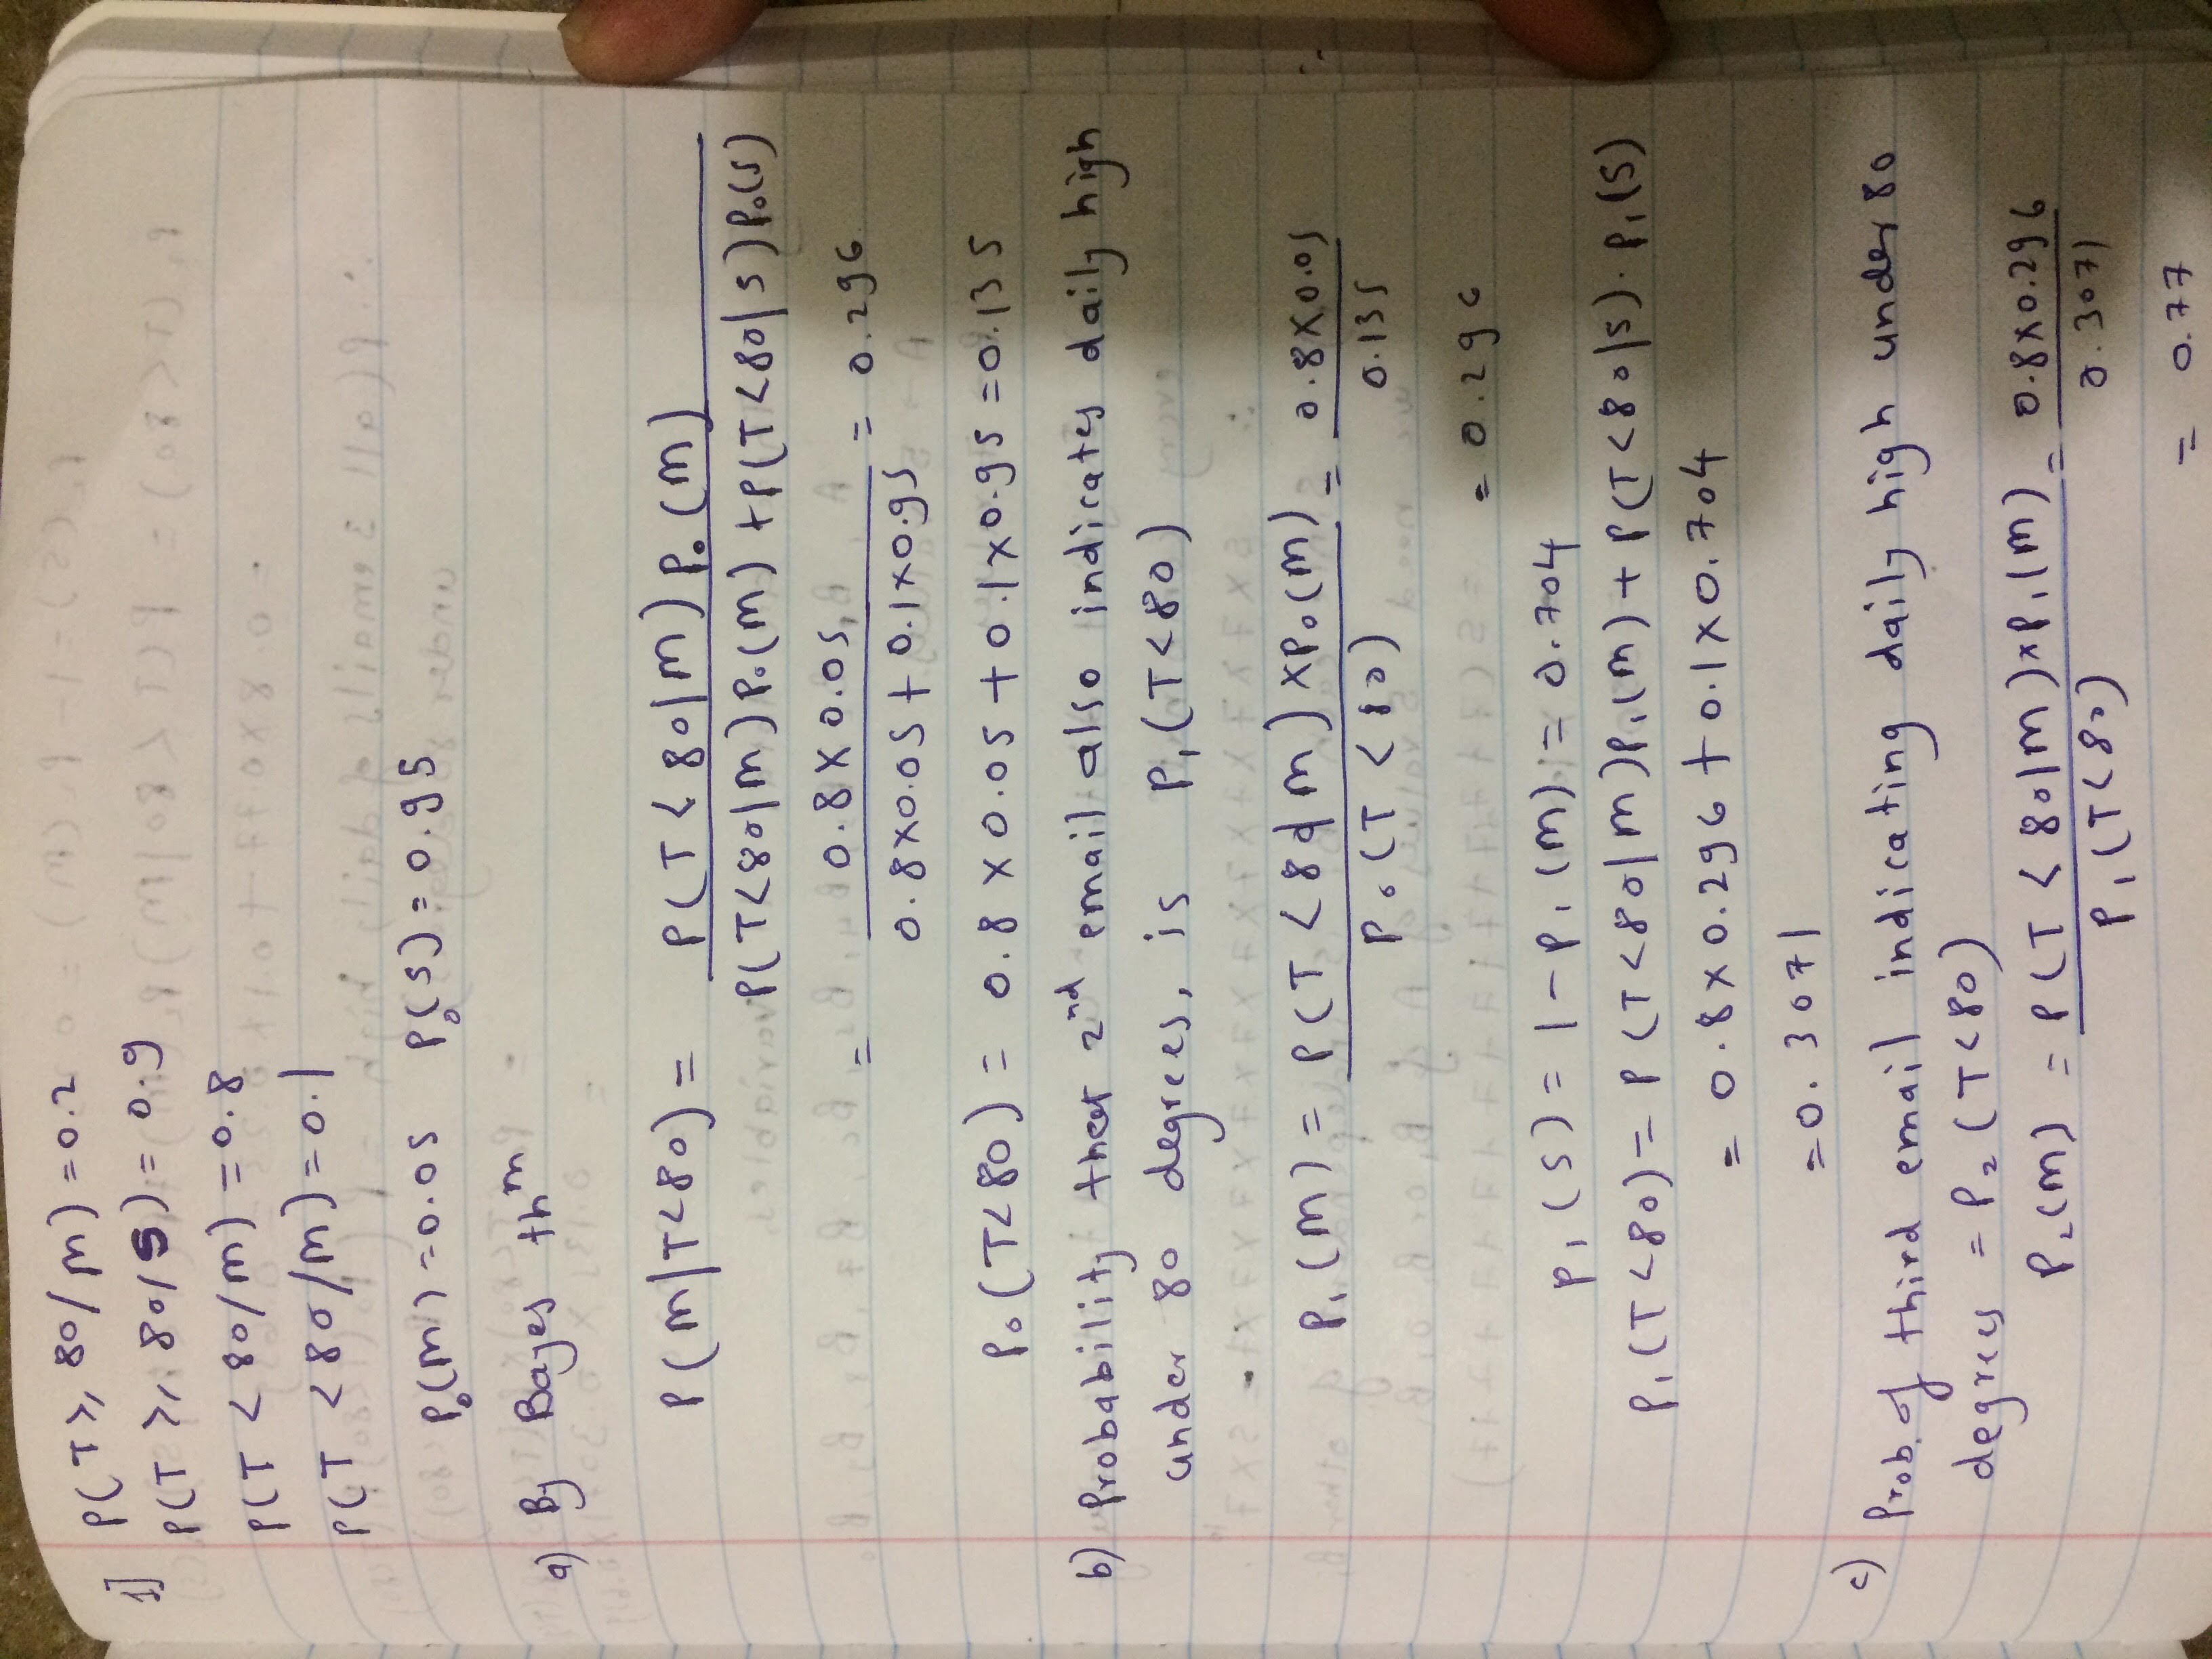 1] P(T ≥ 80/m) = 0.2
P(T ≥ 80/S) = 0.9
P(T < 80/m) = 0.8
P(T < 80/m) = 0.1
P₀(m) = 0.05 P₀(s) = 0.95
a) By Bayes thᵐ
P(m|T<80) = P(T < 80|m) P₀(m)
P(T<80|m) P₀(m) + P(T<80|s) P₀(s)
= 0.8 x 0.05 = 0.296
0.8x0.05 + 0.1x0.95
P₀(T<80) = 0.8 x 0.05 + 0.1x0.95 = 0.135
b) Probability that 2nd email also indicates daily high
under 80 degrees, is P₁(T<80)
P₁(m) = P(T <80|m) x P₀(m) = 0.8x0.05
P₀(T < 80) 0.135
= 0.296
P₁(s) = 1 - P₁(m) = 0.704
P₁(T<80) = P(T<80|m) P₁(m) + P(T<80|s) . P₁(s)
= 0.8 x 0.296 + 0.1 x 0.704
= 0.3071
c) Prob. of third email indicating daily high under 80
degrees = P₂(T<80)
P₂(m) = P(T < 80|m) x P₁(m) = 0.8x0.296
P₁(T<80) 0.3071
= 0.77